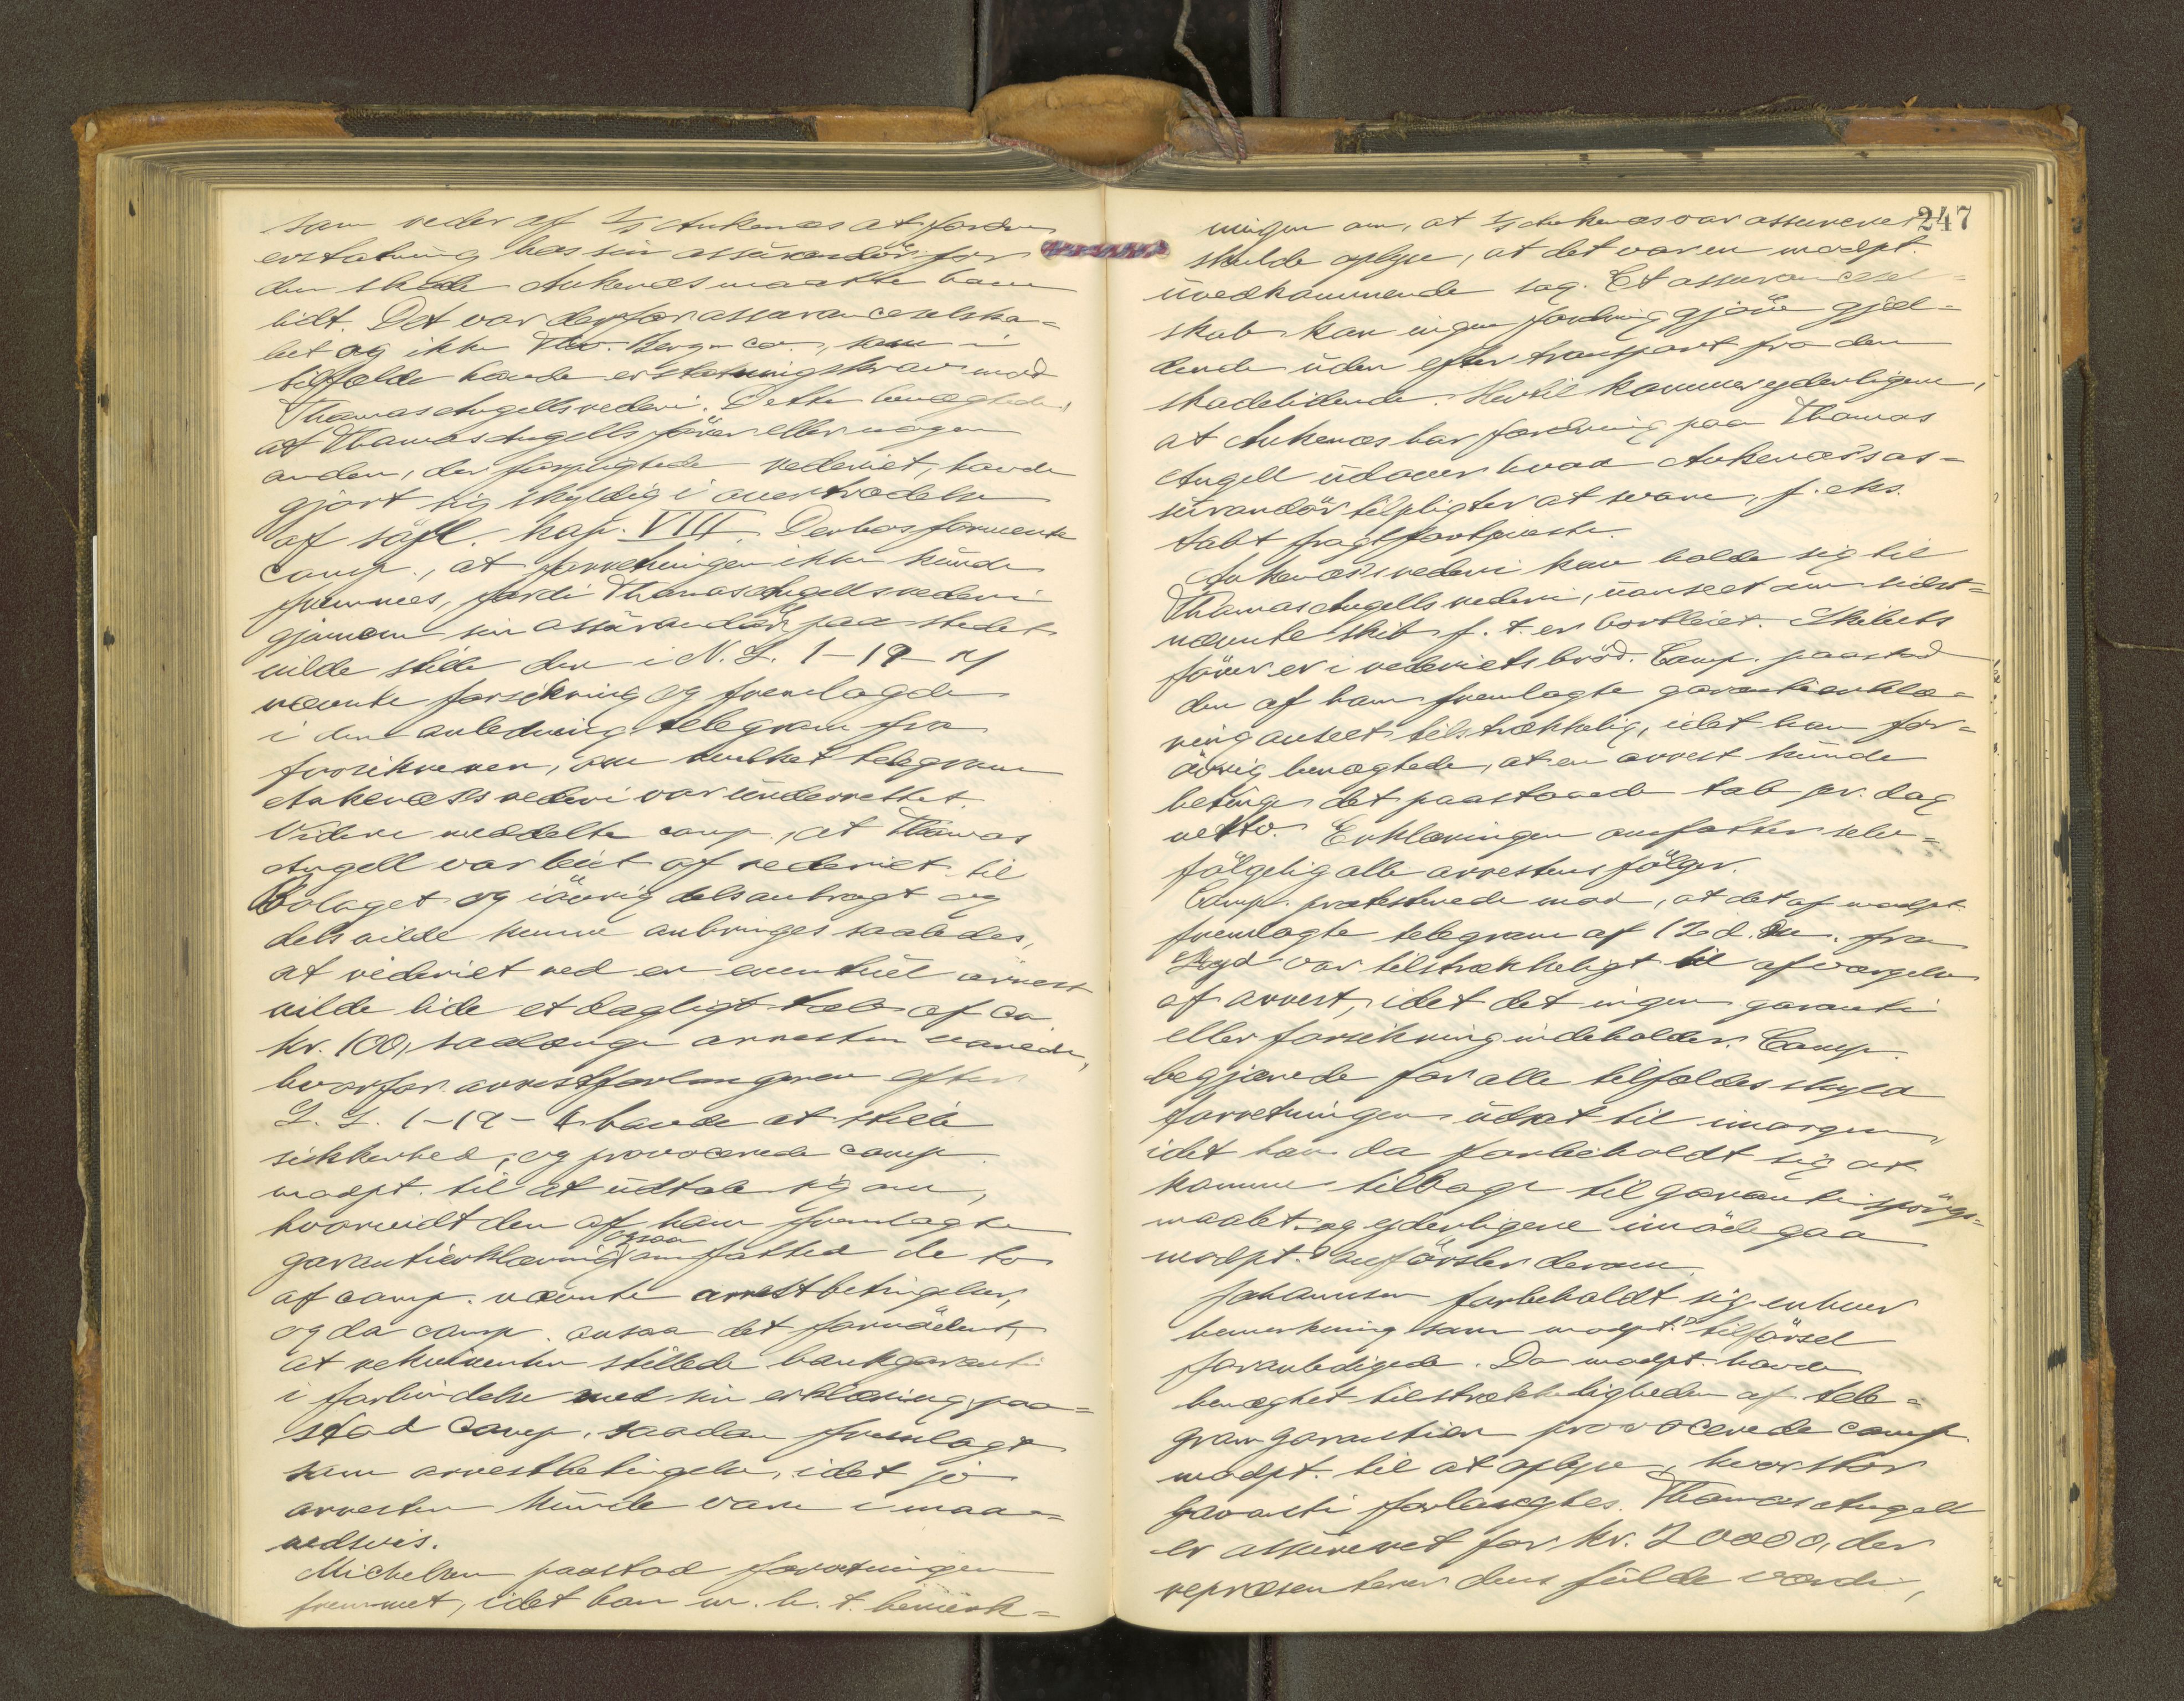 som reder af S/S Ankenæs at fordre
erstatning hos sin assürandör for
den skade Ankenæs maatte have
lidt. Det var derfor assuranceselska=
bet og ikke Thv. Berg & co., som i
tilfælde havde erstatningskrav mod
Thomas Angells rederi. Dette benægtede,
at Thomas Angells förer eller nogen
anden, der forpligtede rederiet, havde
gjort sig skyldig i overtrædelse
af söfl. kap. VIII. Derhos formente
comp., at forretningen ikke künde
fremmes, fordi Thomas Angells rederi
gjennem sin assürandör paa stedet
vilde stille den i N. L. 1-19-4
nævnte forsikring og fremlagde
i den anledning telegram fra
forsikreren, om hvilket telegram
Ankenæs's rederi var ünderrettet.
Videre meddelte comp., at Thomas
Angell var leiet af rederiet til
Bolaget og iövrig dels anbragt og
dels vilde kunne anbringes saaledes,
at rederiet ved en eventüel arrest
vilde lide et dagligt tab af ca
kr. 100, saalænge arresten varede,
hvorfor arrestforlangeren efter
L. L. 1-19-6 havde at stille
sikkerhed, og provocerede comp.
modpt. til at üdtale sig om,
hvorvidt den af ham fremlagte
garantierklæring ogsaa omfatted de to
af comp. nævnte arrestbetingelser,
og da comp. ansaa det fornödent,
at rekvirenten stillede bankgaranti
i forbindelse med sin erklæring, paa=
stod comp. saadan fremlagt
som arrestbetingelse, idet jo
arresten künde vare i maa=
nedsvis.
Michelsen paastod forretningen
fremmet, idet han m. h. t. bemerk=
247
ningen om, at S/S Ankenæs var assureret
skulde oplyse, at det var en modpt.
üvedkommende sag. Et assurancesel=
skab kan ingen fordring gjöre gjæl=
dende üden efter transport fra den
skadelidende. Hertil kommer yderligere,
at Ankenæs har fordring paa Thomas
Angell üdover hvad Ankenæs's as=
sürandör tilpligter at svare, f. eks.
tabt fragtfortjeneste.
Ankenæs's rederi kan holde sig til
Thomas Angells rederi, üanseet om sidst=
nævnte skib f. t. er bortleiet. Skibets
förer er i rederiets bröd. Comp. paastod
den af ham fremlagte garantierklæ=
ring anseet tilstrækkelig, idet han for=
övrig benægtede, at en arrest künde
betinge det paastaaede tab pr. dag
netto. Erklæringen omfatter selv=
fölgelig alle arrestens fölger.
Comp. protesterede mod, at det af modpt.
fremlagte telegram af 12 d. m. fra
Lloyd var tilstrækkeligt til afværgelse
af arrest, idet det ingen garanti
eller forsikring indeholder. Comp.
begjærede for alle tilfældes skyld
forretningen üdsat til imorgen,
idet han da forbeholdt sig at
komme tilbage til garantispörgs=
maalet og yderligere imödegaa
modpt.s anförsler derom.
Johannsen forbeholdt sig enhver
bemerkning som modpt.s tilförsel
foranledigede. Da modpt. havde
benægtet tilstrækkeligheden af tele=
gramgarantien provocerede comp.
modpt. til at oplyse, hvor stor
garanti forlangtes. Thomas Angell
er assüreret for kr. 20000, der
repræsenterer dens fülde værdi,